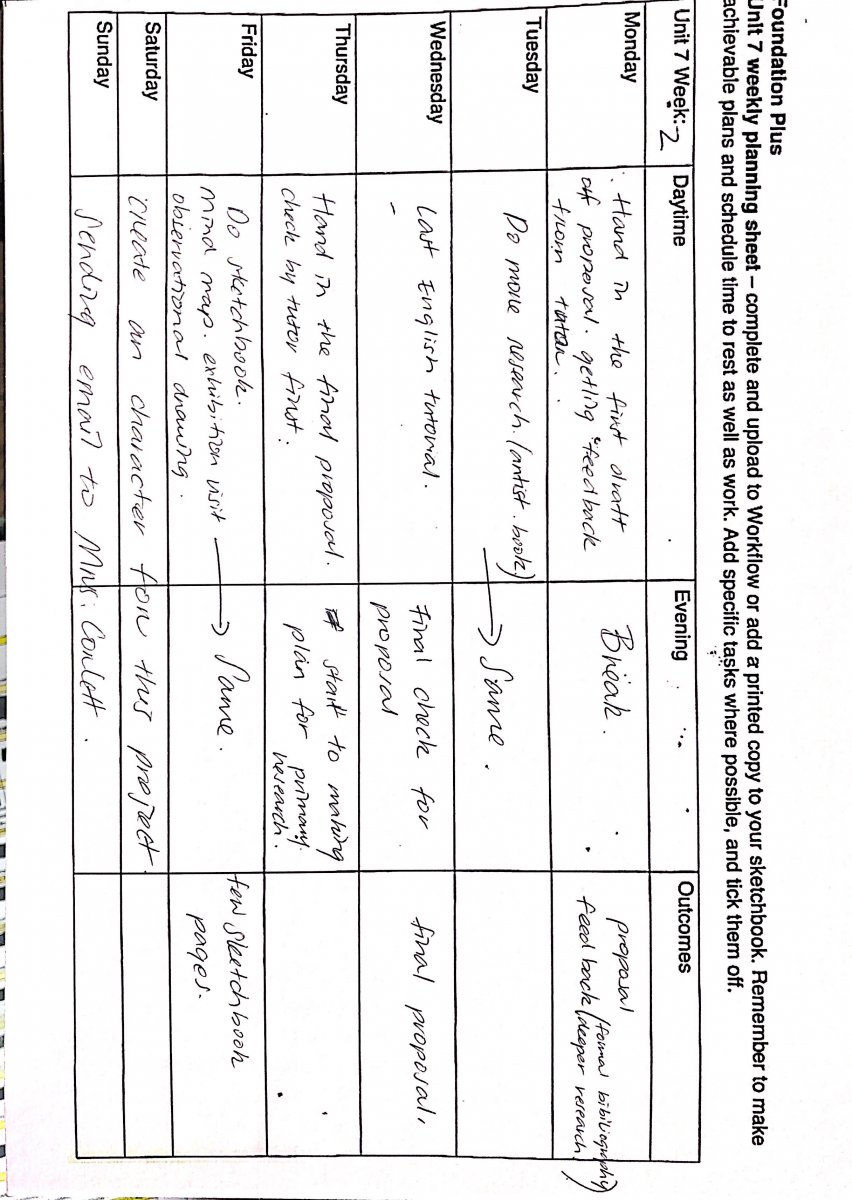 Foundation Plus
Unit 7 weekly planning sheet – complete and upload to Workflow or add a printed copy to your sketchbook. Remember to make
achievable plans and schedule time to rest as well as work. Add specific tasks where possible, and tick them off.
Unit 7 Week: 2
Daytime
Evening
Outcomes
Monday
Hand in the first draft
off proposal. getting feedback
from tutor.
Break.
proposal
feedback (formal bibiliography
/deeper research)
Tuesday
Do more research. (artist. book)
→ Same.
Wednesday
Last English tutorial.
Final check for
proposal
final proposal.
Thursday
Hand in the final proposal.
check by tutor first.
start to making
plan for primary
research.
Friday
Do sketchbook.
mind map. exhibition visit
observational drawing.
→ Same.
few sketchbook
pages.
Saturday
create an character for this project.
Sunday
Sending email to Mrs. Corlett.